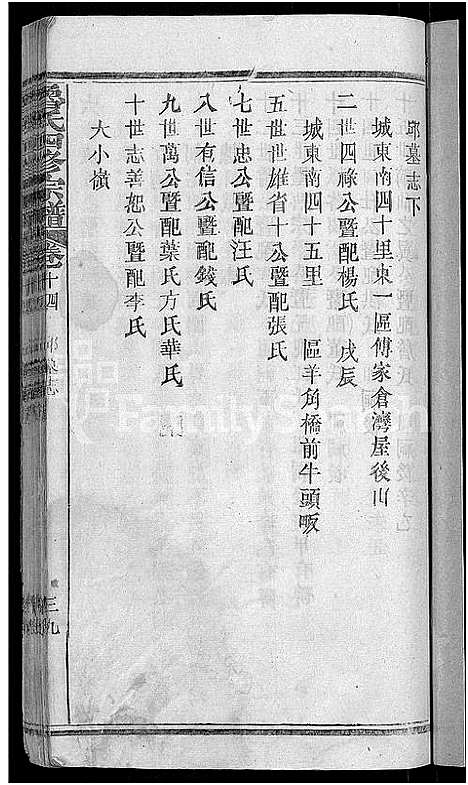 邱墓志下
城東南四十里東一區傅家倉灣屋後山
二世四祿公暨配楊氏 戌辰
城東南四十五里 區羊角橋前牛頭畈
五世世雄省十公暨配張氏
七世忠公暨配汪氏
八世有信公暨配錢氏
九世萬公暨配葉氏方氏華氏
十世志善恕公暨配李氏
大小嶺
氏四修宗譜 卷之十四 邱墓志 三九